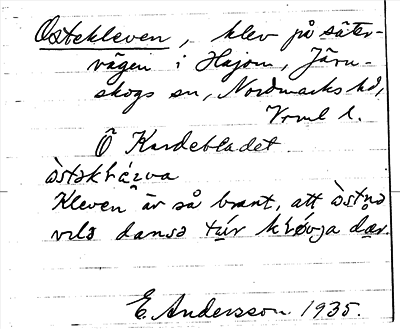 Ostekleven, klev på säter-
vägen i Hajom, Järn-
skogs sn, Nordmarks hd,
Vrml l.
Ö Kardebladet.
Kleven är så brant, att
vilə dansə dær.
E. Andersson 1935.